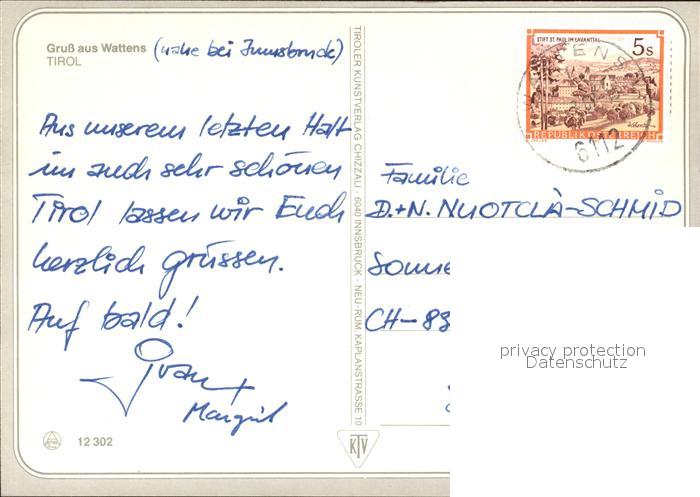 Gruß aus Wattens (nahe bei Innsbruck)
TIROL
Aus unserem letzten Halt
im auch sehr schönen
Tirol lassen wir Euch
herzlich grüssen.
Auf bald!
Ivan +
Margrit
12 302
TIROLER KUNSTVERLAG CHIZZALI · 6040 INNSBRUCK · NEU-RUM, KAPLANSTRASSE 10
KTV
STIFT ST. PAUL IM LAVANTTAL
5 S
REPUBLIK ÖSTERREICH
WATTENS
6112
Familie
D.+N. NUOTCLÀ-SCHMID
Sonne
CH-89
privacy protection
Datenschutz